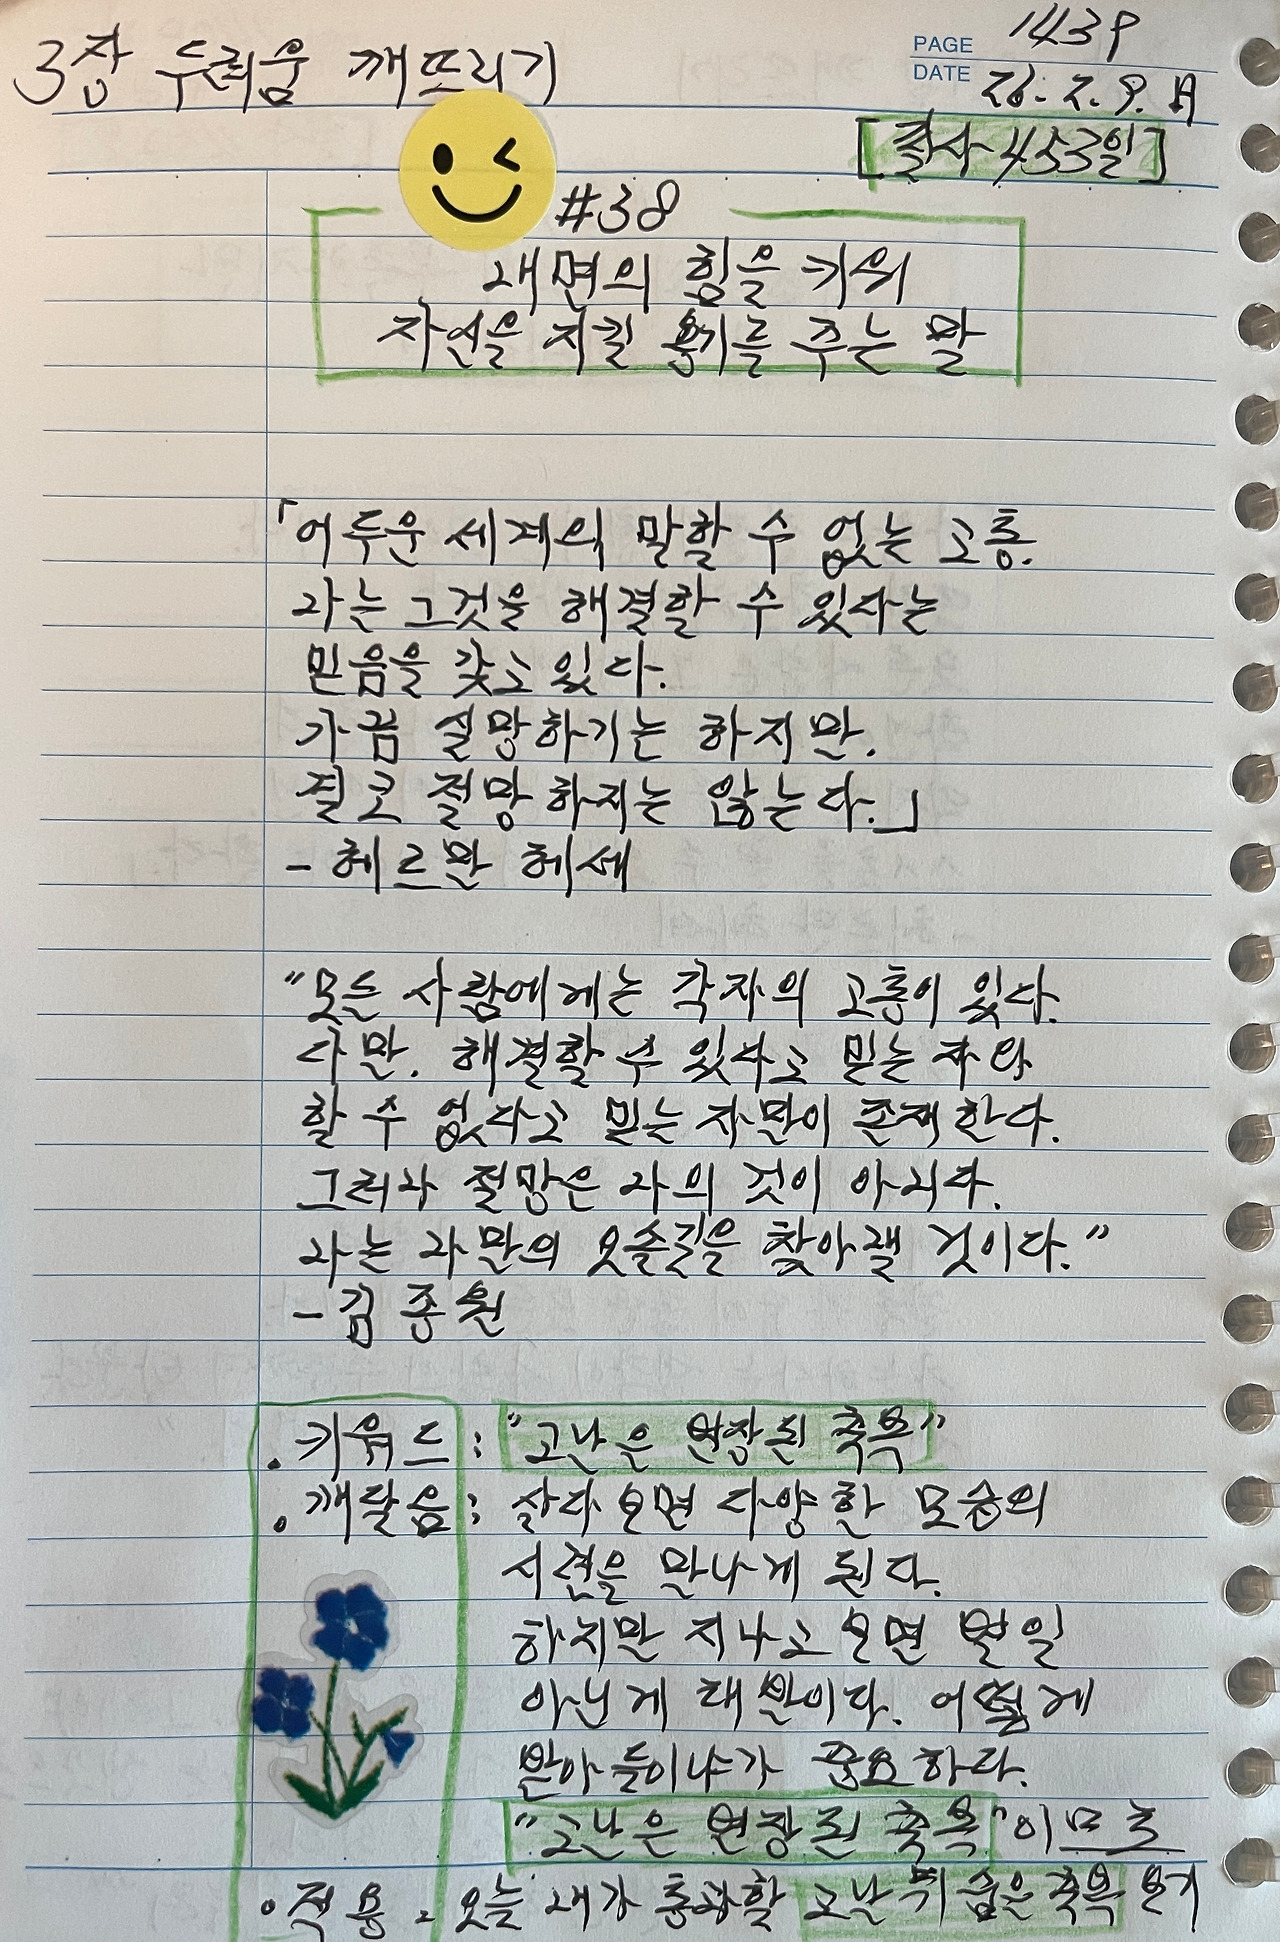 3장 두려움 깨뜨리기
PAGE 143P
DATE 26. 2. 9. 月
[필사 453일]
#38
내면의 힘을 키워
자신을 지킬 용기를 주는 말
「어두운 세계의 말할 수 없는 고통.
나는 그것을 해결할 수 있다는
믿음을 갖고 있다.
가끔 실망하기는 하지만.
결코 절망하지는 않는다.」
- 헤르만 헤세
"모든 사람에게는 각자의 고통이 있다.
다만. 해결할 수 있다고 믿는 자와
할 수 없다고 믿는 자만이 존재한다.
그러나 절망은 나의 것이 아니다.
나는 나만의 오솔길을 찾아낼 것이다."
- 김종원
. 키워드 : "고난은 변장된 축복"
. 깨달음 : 살다보면 다양한 모습의
시련을 만나게 된다.
하지만 지나고 보면 별일
아닌게 태반이다. 어떻게
받아들이냐가 중요하다.
"고난은 변장된 축복"이므로
. 적용 : 오늘 내가 통과할 고난 뒤 숨은 축복 보기